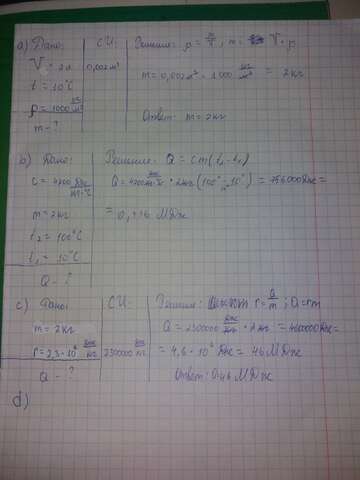 a) Дано: СИ: Решение: ρ = m/V, m = V · ρ
V = 2л 0,002м³
t = 10°C m = 0,002м³ · 1000 кг/м³ = 2кг
ρ = 1000 кг/м³
m - ? Ответ: m = 2кг
b) Дано: Решение: Q = cm(t₂ - t₁)
c = 4200 Дж/кг·°C Q = 4200 Дж/кг·°C · 2кг (100° - 10°) = 756000Дж =
m = 2кг = 0,756 МДж
t₂ = 100°C
t₁ = 10°C
Q - ?
c) Дано: СИ: Решение: r = Q/m ; Q = rm
m = 2кг Q = 2300000 Дж/кг · 2кг = 4600000Дж =
r = 2,3 · 10⁶ Дж/кг 2300000 Дж/кг = 4,6 · 10⁶ Дж = 46 МДж
Q - ? Ответ: 0,46 МДж
d)